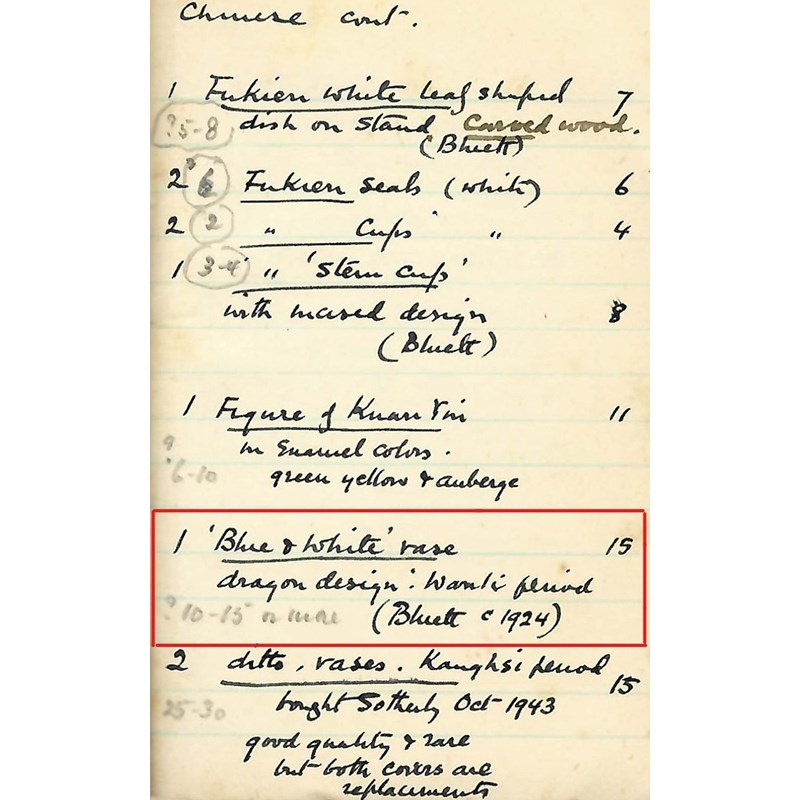 Chinese cont.
1 Fukien white leaf shaped 7
?5-8 dish on stand Carved wood.
(Bluett)
2 6 Fukien seals (white) 6
2 2 " Cups " " 4
1 3-4 " 'Stem Cups'
with incised design 8
(Bluett)
1 Figure of Kuan Yin 11
in Enamel colors.
? 6-10 green yellow & auberge
1 'Blue & White' vase 15
dragon design: Wanli period
?10-15 or more (Bluett c 1924)
2 ditto. vases. Kanghsi period 15
25-30 bought Sotheby Oct 1943
good quality & rare
but both covers are
replacements